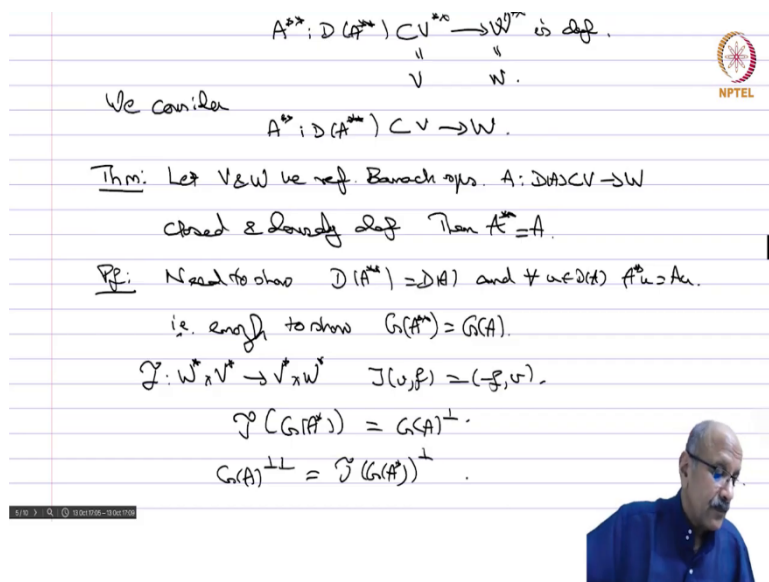 A** : D(A**) ⊂ V** → W** is def.
" "
V W.
NPTEL
We consider
A** : D(A**) ⊂ V → W.
Thm: Let V & W be ref. Banach sps. A : D(A) ⊂ V → W
closed & densely def Then A** = A.
Pf: Need to show D(A**) = D(A) and ∀ u ∈ D(A) A**u = Au.
i.e. enough to show G(A**) = G(A).
J : W* × V* → V* × W* J(v, f) = (-f, v).
J(G(A*)) = G(A)⊥.
G(A)⊥⊥ = J(G(A*))⊥.
5/10 13 Oct 17:05 – 13 Oct 17:09